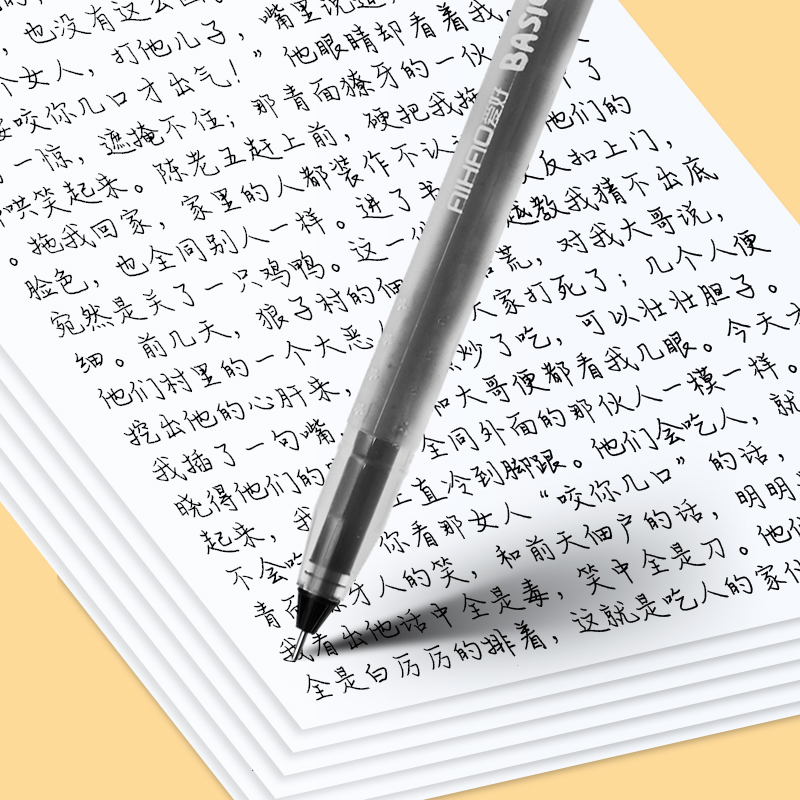 ，也没有这么
个女人，打他儿子，嘴里说道
咬你几口才出气！”他眼睛却看着我
一惊，遮掩不住；那青面獠牙的一伙
哄笑起来。陈老五赶上前，硬把我拖 了
。拖我回家，家里的人都装作不认 他们的
脸色，也全同别人一样。进了书 反扣上门，
宛然是关了一只鸡鸭。这一 越教我猜不出底
细。前几天，狼子村的佃 荒，对我大哥说，
他们村里的一个大恶人 大家打死了；几个人便
挖出他的心肝来， 炒了吃，可以壮壮胆子。
我插了一句嘴 和大哥便都看我几眼。今天才
晓得他们的 全同外面的那伙人一模一样。
起来，我 直冷到脚跟。他们会吃人，就
不会吃 你看那女人“咬你几口”的话，
青面 牙人的笑，和前天佃户的话，明明
我看出他话中全是毒，笑中全是刀。他们
全是白厉厉的排着，这就是吃人的家伙
AIHAO爱好 BASIC